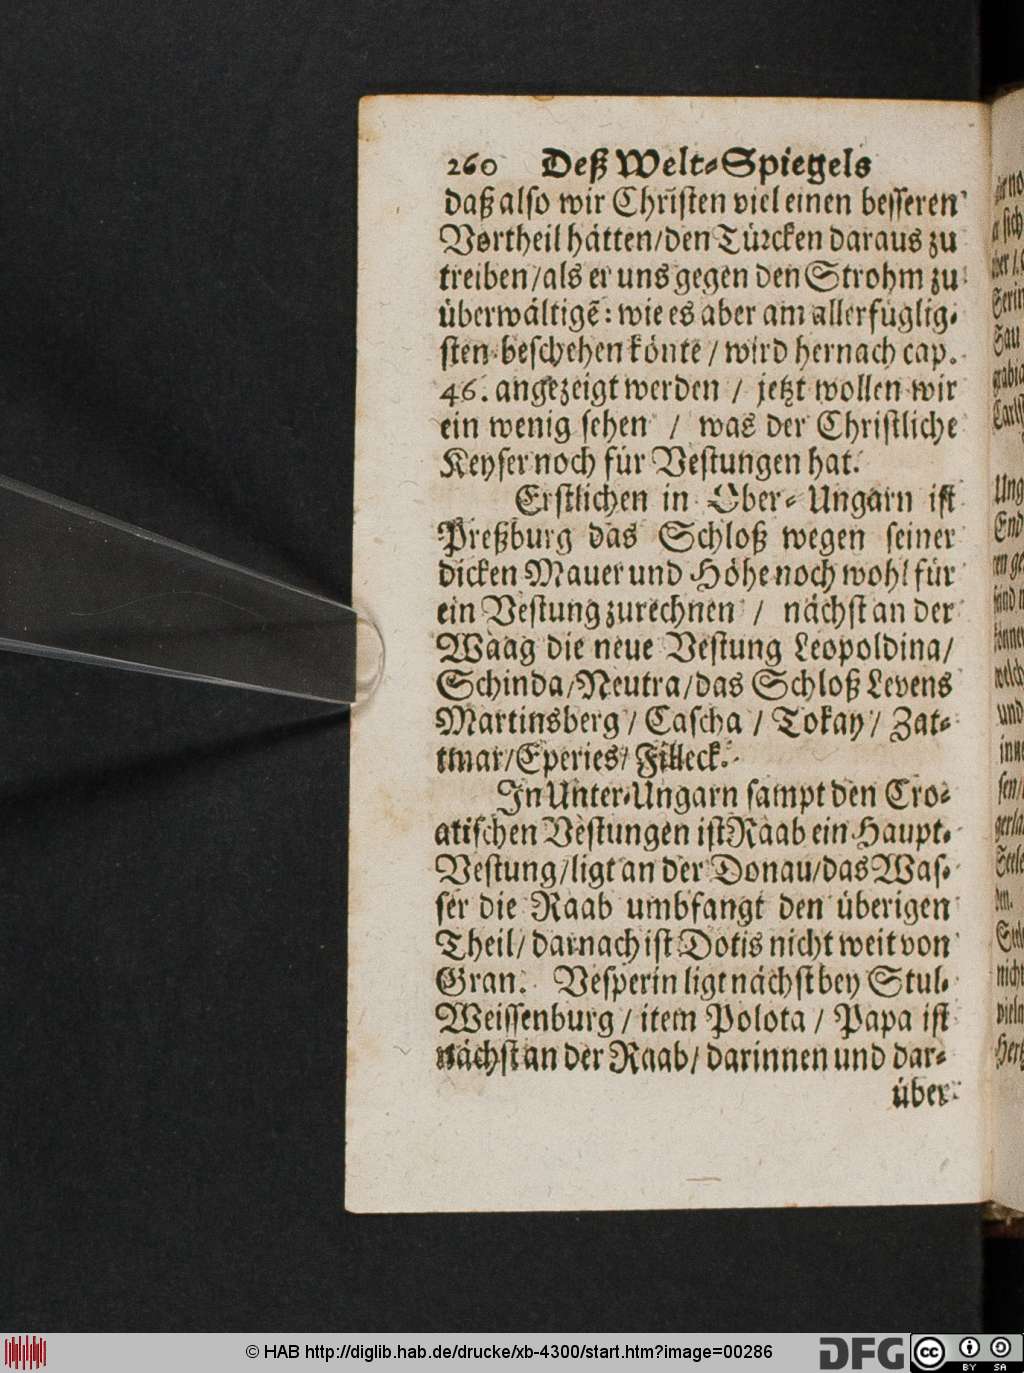 260 Deß Welt-Spiegels
daß also wir Christen viel einen besseren
Vortheil hätten/den Türcken daraus zu
treiben/als er uns gegen den Strohm zu
überwältigẽ: wie es aber am allerfuglig-
sten beschehen könte / wird hernach cap.
46. angezeigt werden / jetzt wollen wir
ein wenig sehen / was der Christliche
Keyser noch für Vestungen hat.
Erstlichen in Ober-Ungarn ist
Preßburg das Schloß wegen seiner
dicken Mauer und Höhe noch wohl für
ein Vestung zurechnen / nächst an der
Waag die neue Vestung Leopoldina/
Schinda/Neutra/das Schloß Levens
Martinsberg / Cascha / Tokay / Zat-
tmar/Eperies/ Filleck.
In Unter-Ungarn sampt den Cro-
atischen Vestungen ist Raab ein Haupt-
Vestung/ligt an der Donau/das Was-
ser die Raab umbfangt den überigen
Theil/ darnach ist Dotis nicht weit von
Gran. Vesperin ligt nächst bey Stul-
Weissenburg / item Polota / Papa ist
nächst an der Raab/ darinnen und dar-
über
© HAB http://diglib.hab.de/drucke/xb-4300/start.htm?image=00286
DFG
cc BY SA